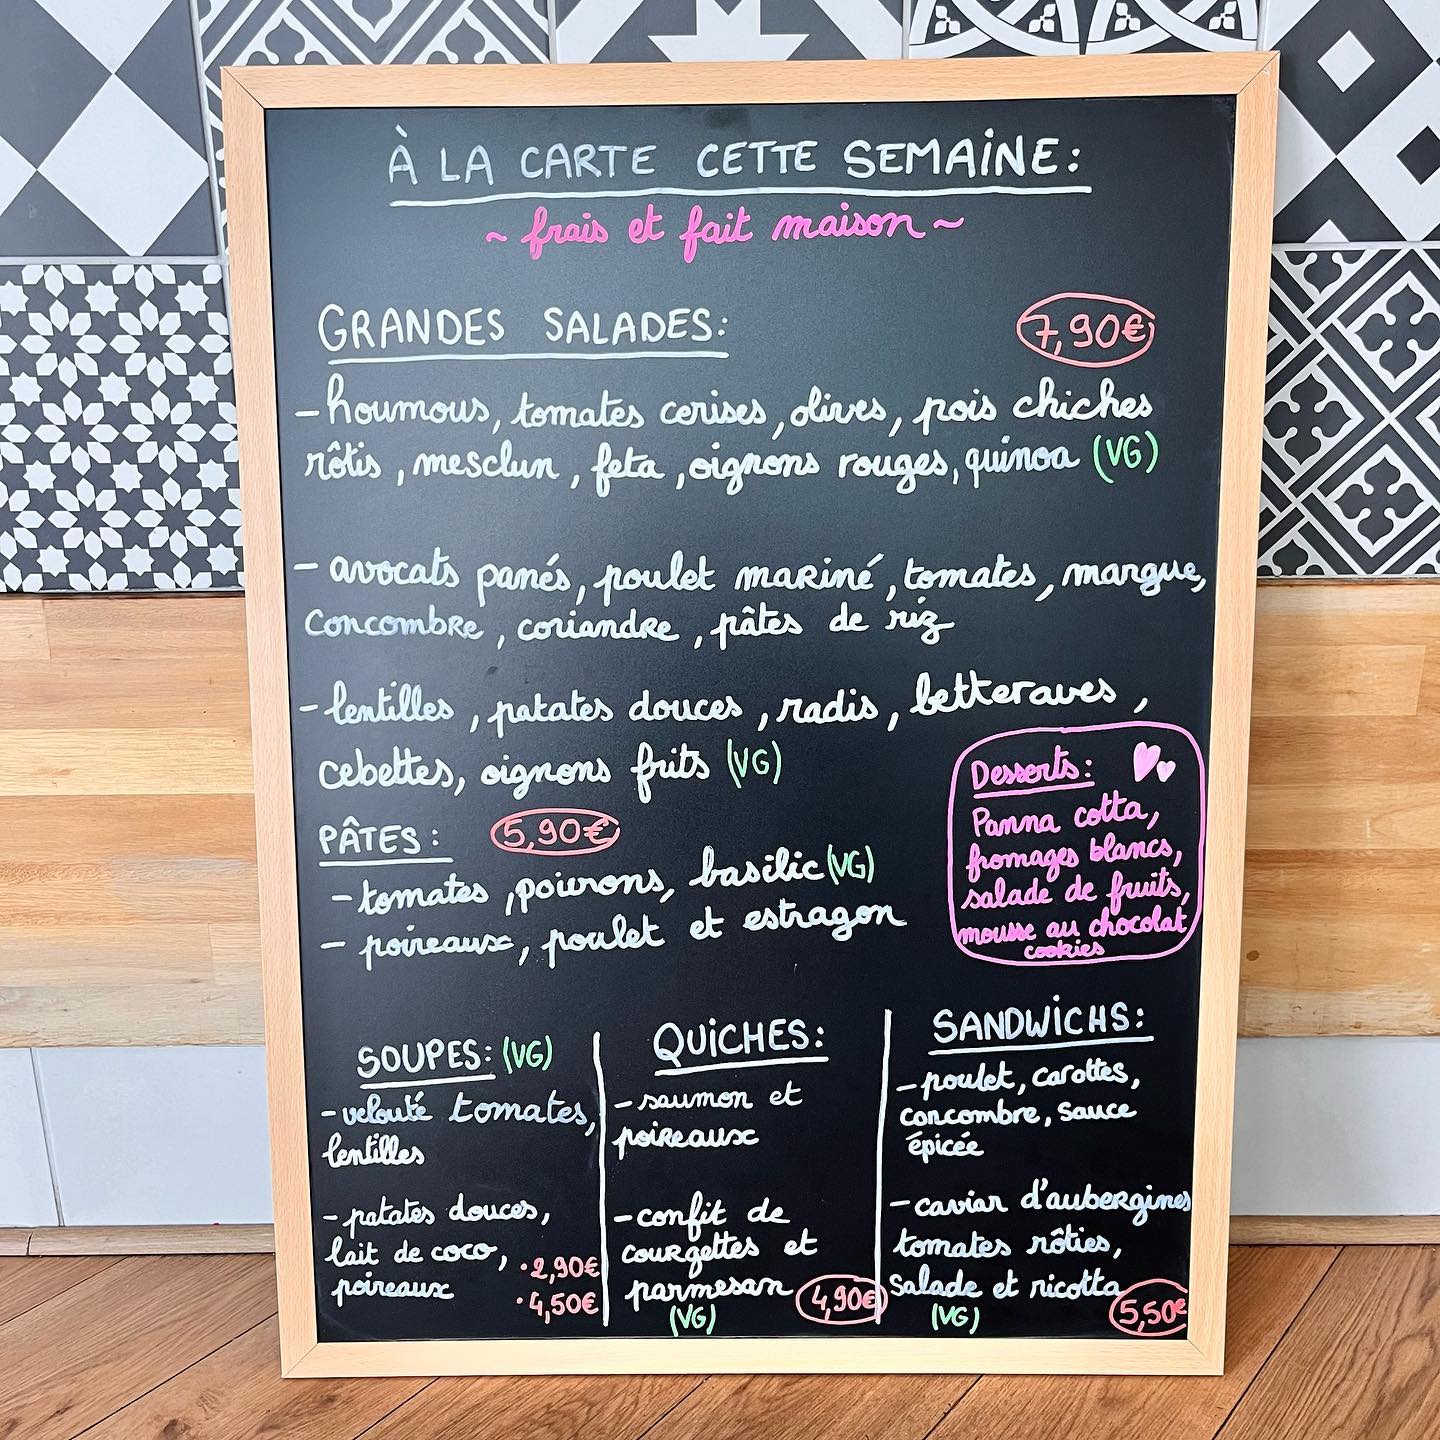 À LA CARTE CETTE SEMAINE:
~ frais et fait maison ~
GRANDES SALADES:
7,90€
- houmous, tomates cerises, olives, pois chiches
rôtis, mesclun, feta, oignons rouges, quinoa (VG)
- avocats panés, poulet mariné, tomates, mangue,
concombre, coriandre, pâtes de riz
- lentilles, patates douces, radis, betteraves,
cebettes, oignons frits (VG)
PÂTES:
5,90€
- tomates, poivrons, basilic (VG)
- poireaux, poulet et estragon
Desserts:
Panna cotta,
fromages blancs,
salade de fruits,
mousse au chocolat
cookies
SOUPES: (VG)
- velouté tomates,
lentilles
- patates douces,
lait de coco,
poireaux
• 2,90€
• 4,50€
QUICHES:
- saumon et
poireaux
- confit de
courgettes et
parmesan
(VG)
4,90€
SANDWICHS:
- poulet, carottes,
concombre, sauce
épicée
- caviar d'aubergines
tomates rôties,
salade et ricotta
(VG)
5,50€